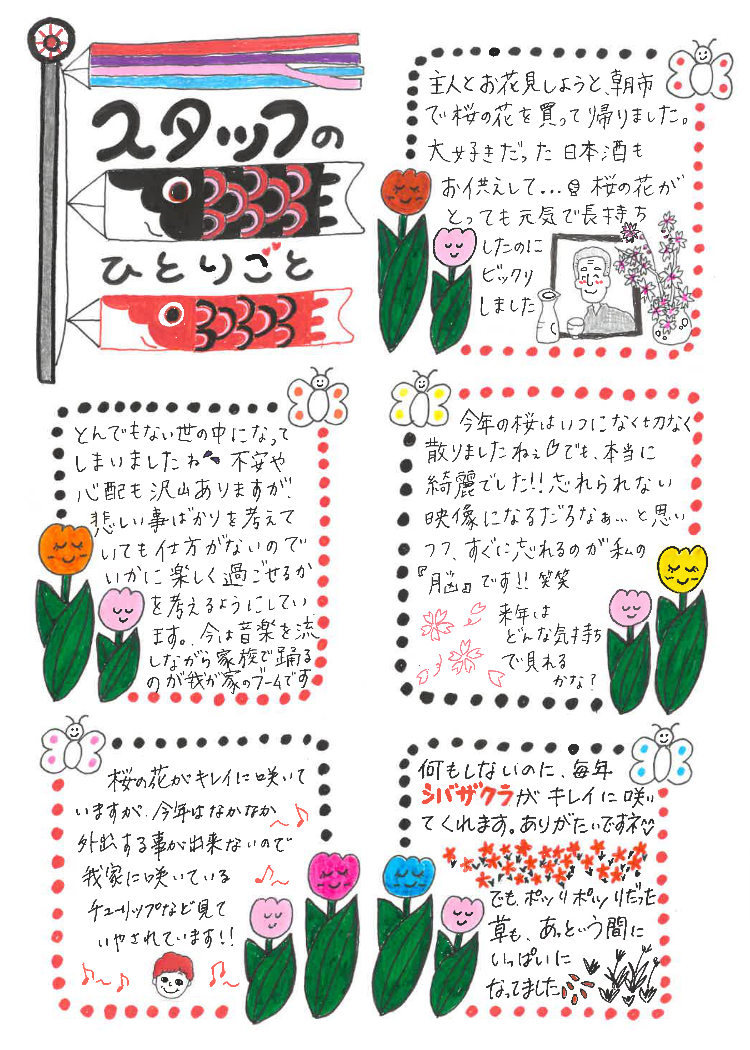 スタッフの
ひとりごと
主人とお花見しようと、朝市
で桜の花を買って帰りました。
大好きだった日本酒も
お供えして...桜の花が
とっても元気で長持ち
したのに
ビックリ
しました
とんでもない世の中になって
しまいましたね 不安や
心配も沢山ありますが、
悲しい事ばかりを考えて
いても仕方がないので
いかに楽しく過ごせるか
を考えるようにしてい
ます。今は音楽を流
しながら家族で踊る
のが我が家のブームです
今年の桜はいつになく切なく
散りましたねぇ でも、本当に
綺麗でした!!忘れられない
映像になるだろなぁ...と思い
つつ、すぐに忘れるのが私の
『脳』です!!笑笑
来年は
どんな気持ち
で見れる
かな?
桜の花がキレイに咲いて
いますが、今年はなかなか
外出する事が出来ないので
我家に咲いている
チューリップなど見て
いやされています!!
何もしないのに、毎年
シバザクラがキレイに咲い
てくれます。ありがたいですネ
でも、ポツリポツリだった
草も、あっという間に
いっぱいに
なってました